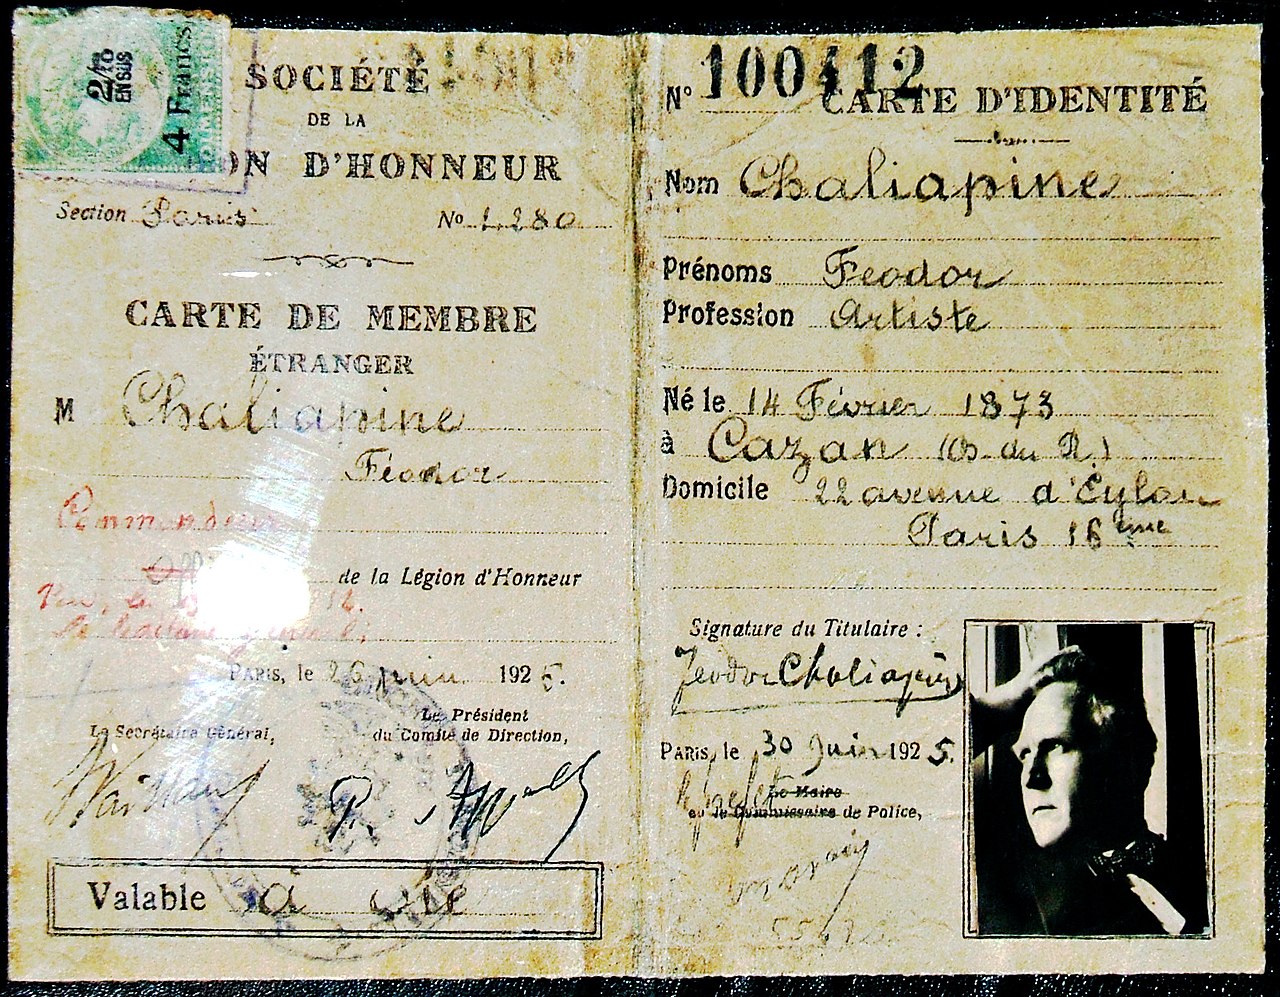 2/10
EN SUS
4 Francs
SOCIÉTÉ
DE LA
ON D'HONNEUR
Section Paris Nº 1.280
CARTE DE MEMBRE
ÉTRANGER
M Chaliapine
Féodor
Commandeur
de la Légion d'Honneur
PARIS, le 26 juin 1925.
Le Secrétaire Général,
Le Président
du Comité de Direction,
Valable à vie
Nº 100412
CARTE D'IDENTITÉ
Nom Chaliapine
Prénoms Feodor
Profession Artiste
Né le 14 Février 1873
à Cazan
Domicile 22 avenue d'Eylau
Paris 16ème
Signature du Titulaire :
Feodor Chaliapine
PARIS, le 30 Juin 1925.
le préfet
Le Maire
ou le Commissaire de Police,